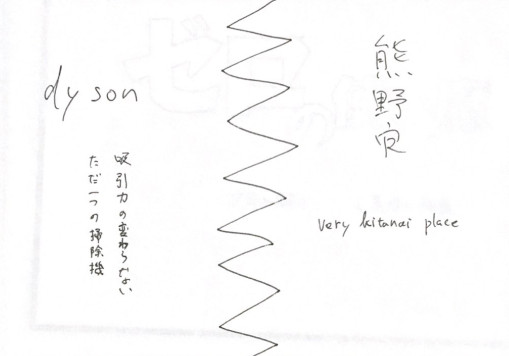 dyson
吸引力の変わらない
ただ一つの掃除機
熊野寮
very kitanai place